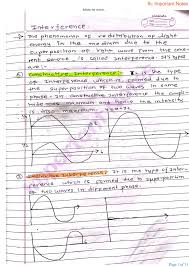 Important Notes
Interference
The phenomenon of redistribution of light
energy in the medium due to the
superposition of light wave from the
source is called Interference. It's types
are :-
Constructive Interference :- It is the type
of Interference which is formed due to
the superposition of two waves in same
phase. In constructive interference the
maximum and hence the intensity
is also maximum
Destructive Interference : It is the type of
Interference which is formed due to superposition
of two waves in different phase.
Page 1 of 11